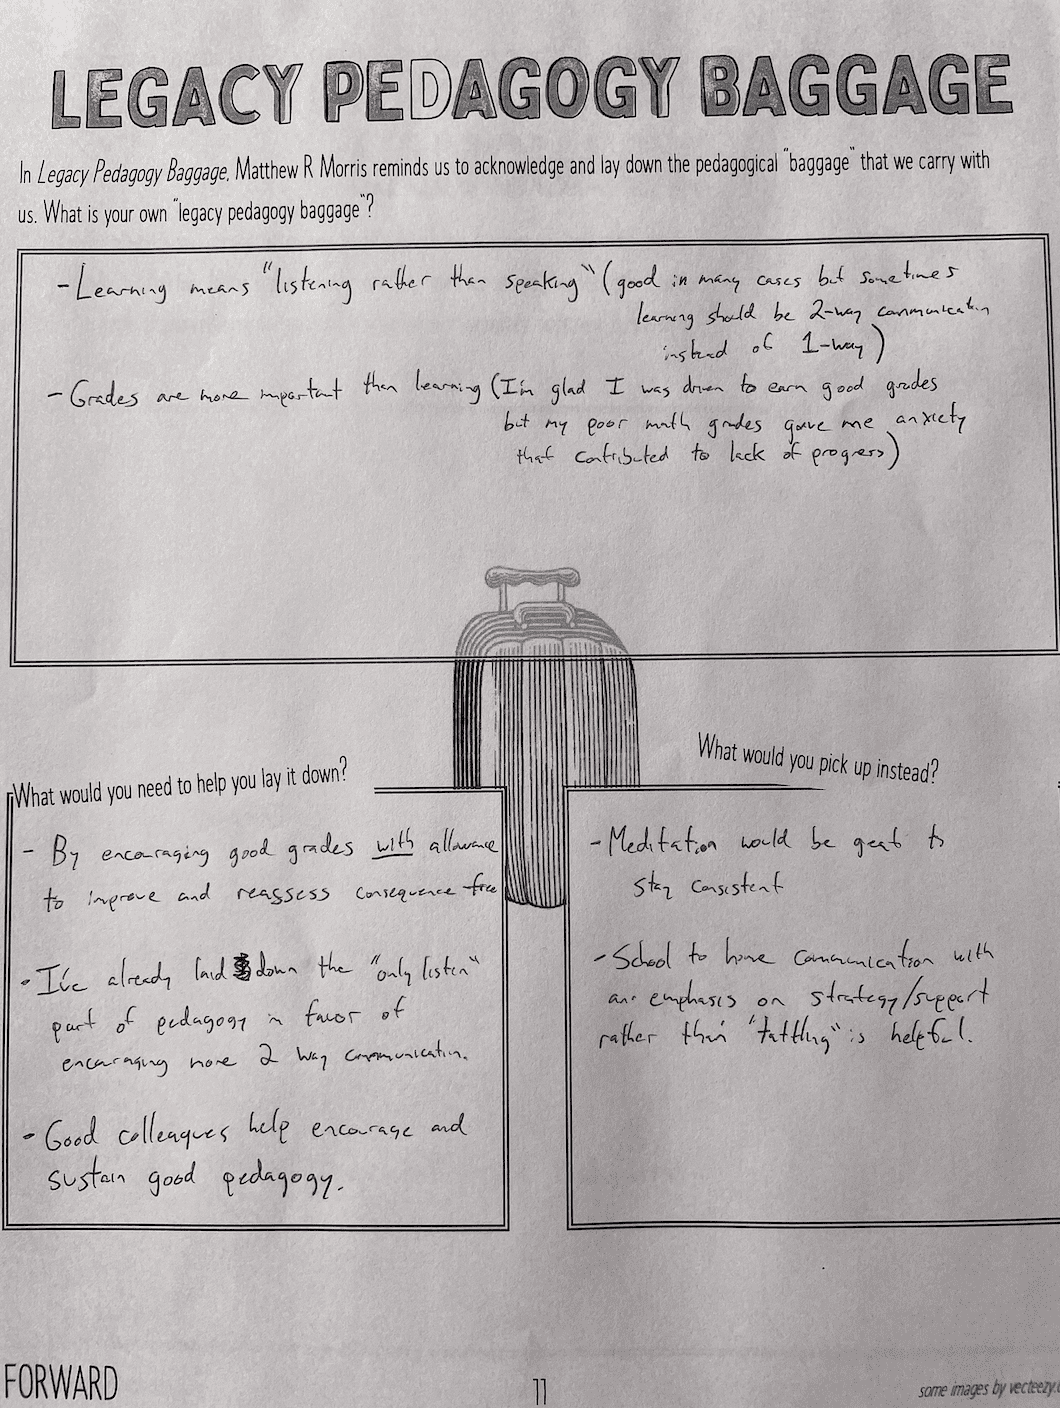 LEGACY PEDAGOGY BAGGAGE
In Legacy Pedagogy Baggage, Matthew R Morris reminds us to acknowledge and lay down the pedagogical "baggage" that we carry with
us. What is your own "legacy pedagogy baggage"?
- Learning means "listening rather than speaking" (good in many cases but sometimes
learning should be 2-way communication
instead of 1-way)
- Grades are more important than learning (I'm glad I was driven to earn good grades
but my poor math grades gave me anxiety
that contributed to lack of progress)
What would you need to help you lay it down?
- By encouraging good grades with allowance
to improve and reassess consequence free
- I've already laid down the "only listen"
part of pedagogy in favor of
encouraging more 2 way communication.
- Good colleagues help encourage and
sustain good pedagogy.
What would you pick up instead?
- Meditation would be great to
stay consistent
- School to home communication with
an emphasis on strategy/support
rather than "tattling" is helpful.
FORWARD
11
some images by vecteezy.